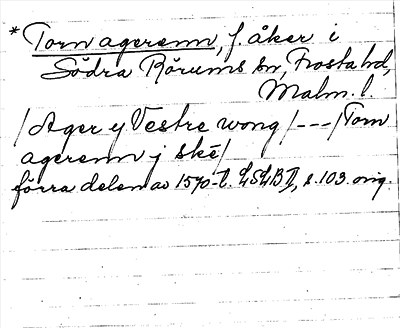 * Torn agerenn, f. åker i
Södra Rörums sn, Frosta hd,
Malm. l.
/ Ager y Vestre wong / --- / Torn
agerenn j ske /
förra delen av 1570-t. LSLB II, s. 103. orig.